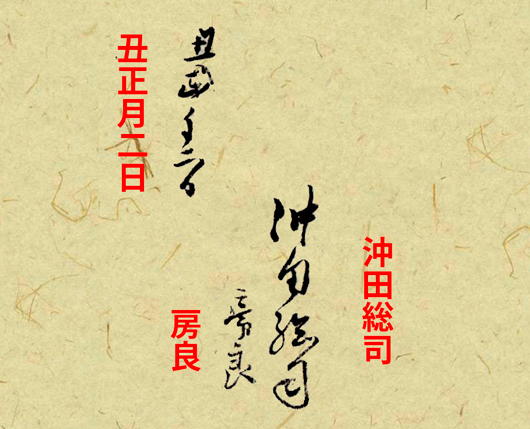 沖田総司
沖田総司
房良
房良
丑正月二日
丑正月二日